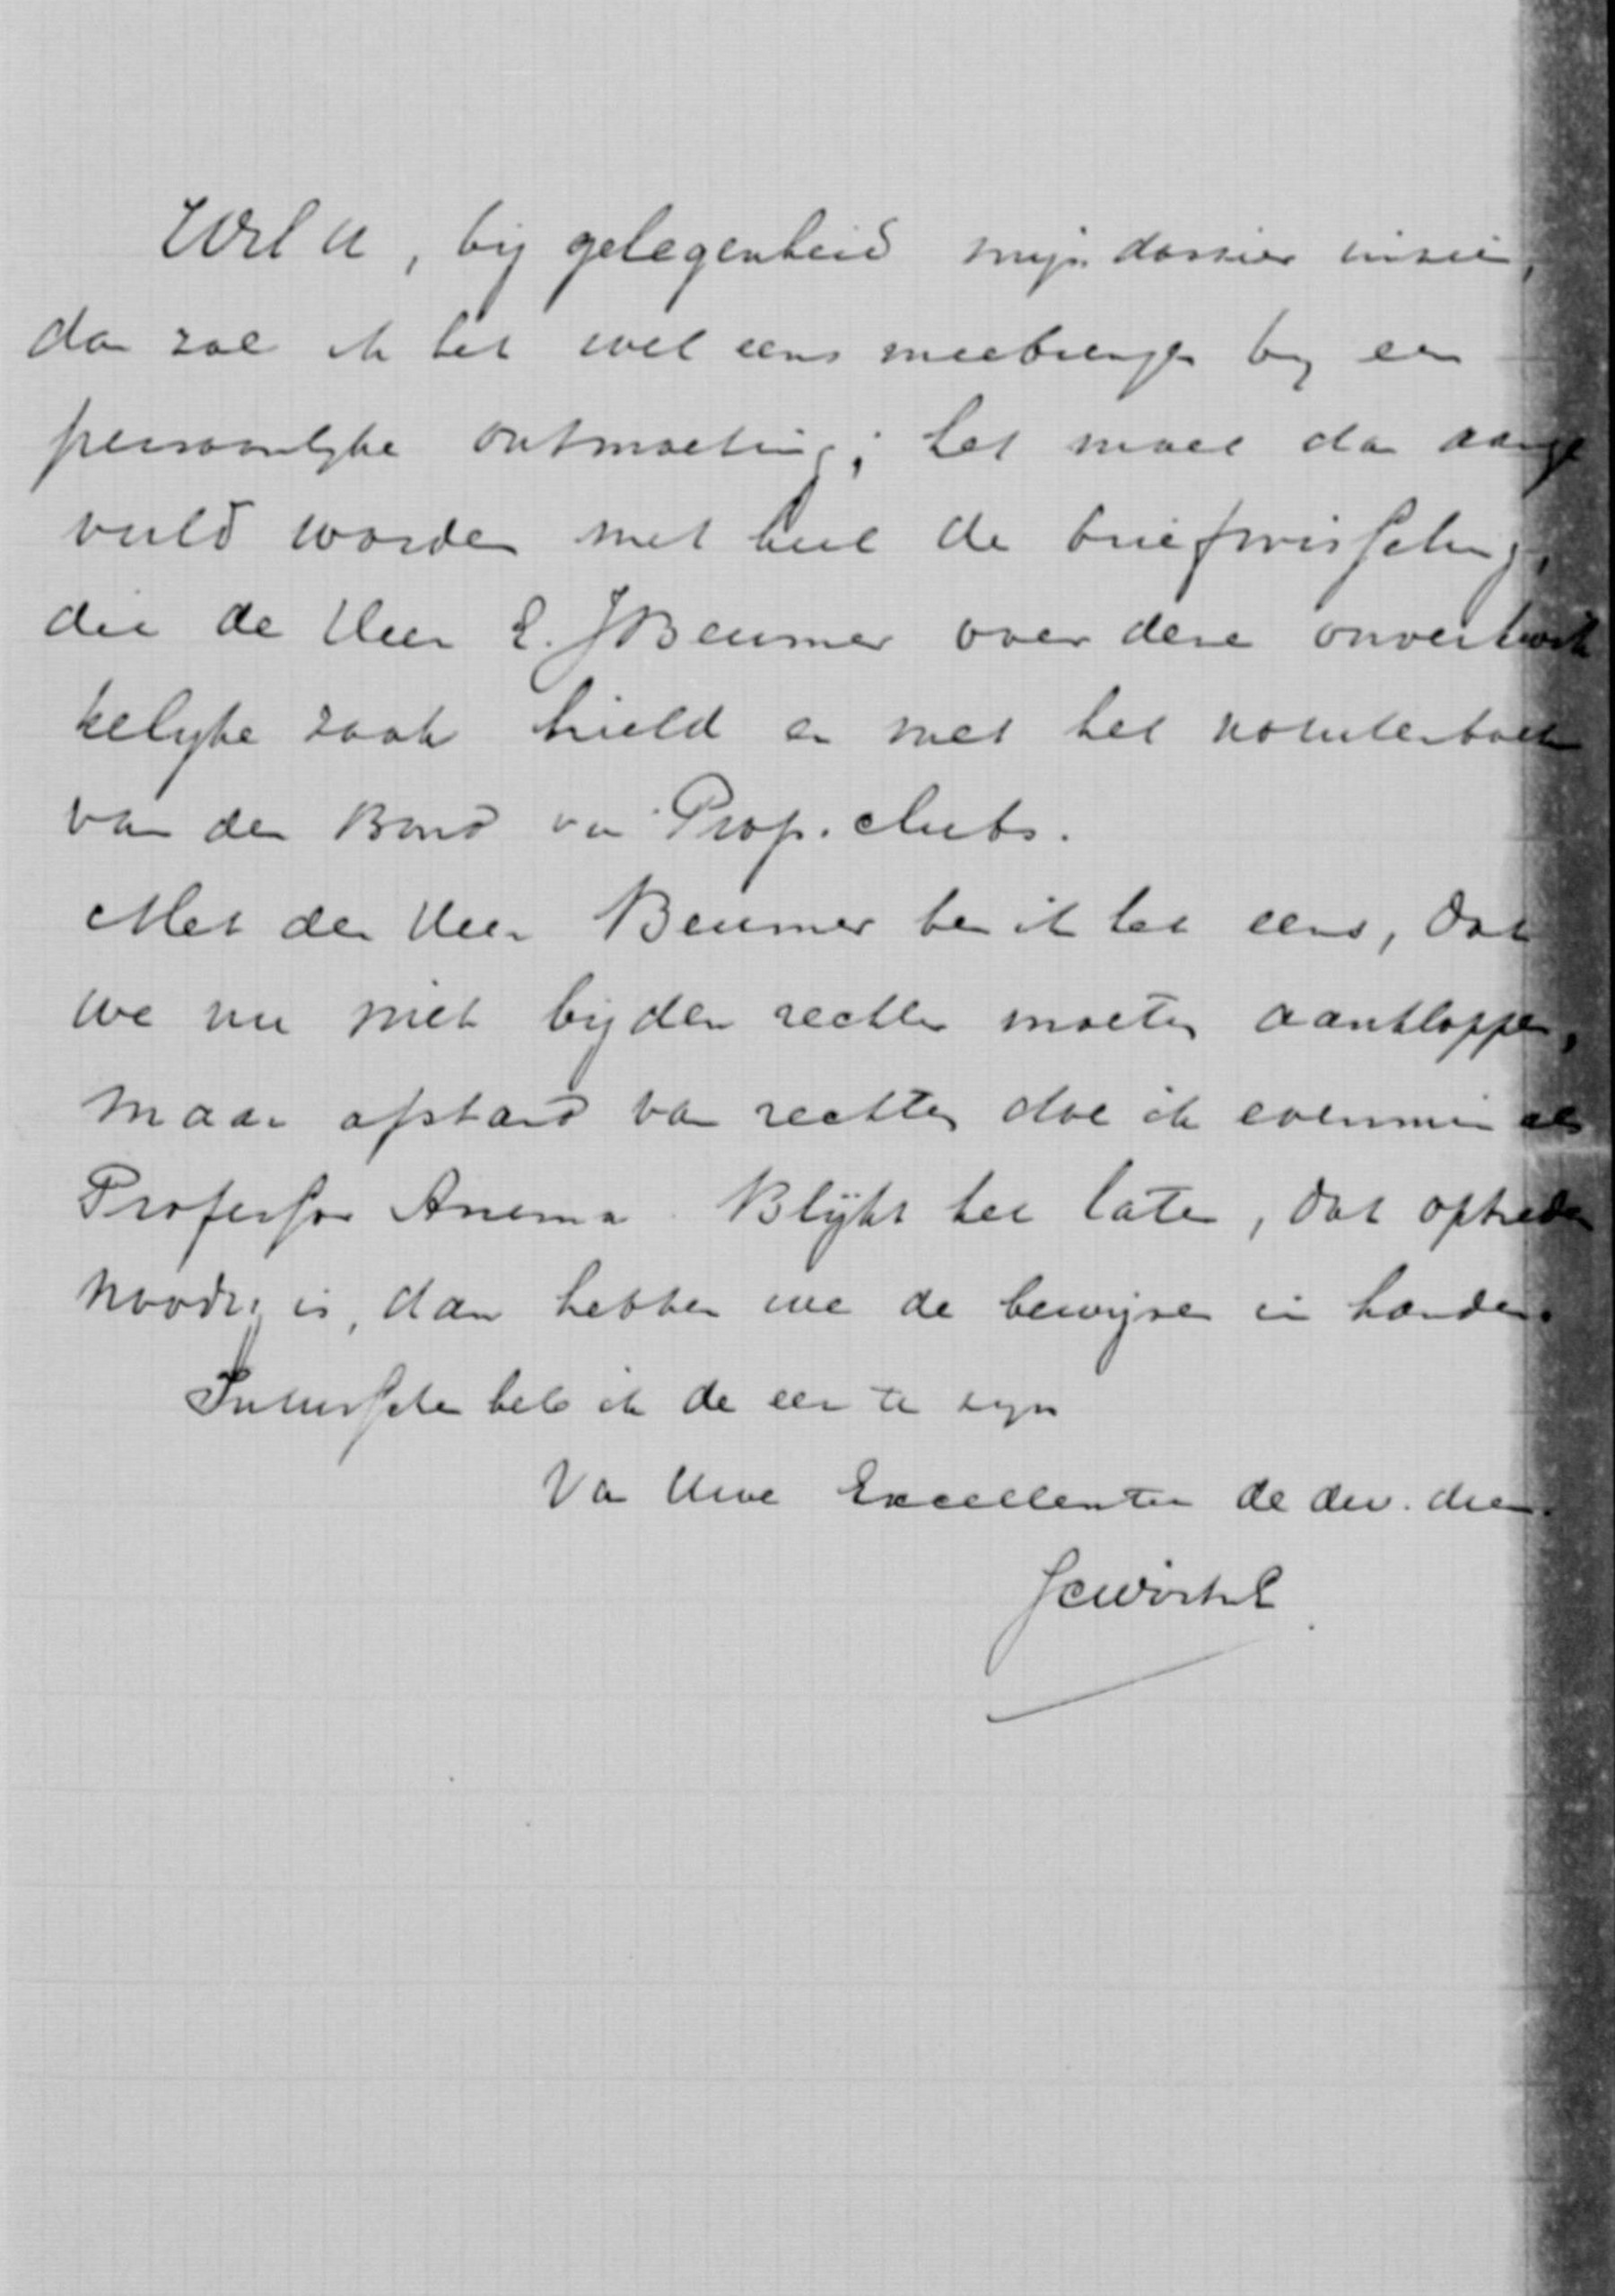 Wil U, bij gelegenheid mijn dossier inzien,
dan zal ik het wel eens meebrengen bij een
persoonlijke ontmoeting; het moet dan aange
vuld worden met heel de briefwisseling,
die de Heer E. J Beumer over deze onverkwik
kelijke zaak hield en met het notulenboek
van den Bond van Prop. clubs.
Met den Heer Beumer ben ik het eens, dat
we nu niet bij den rechter moeten aankloppen,
maar afstand van rechten doe ik evenmin als
Professor Anema. Blijkt het later, dat optreden
noodig is, dan hebben we de bewijzen in handen.
Intusschen heb ik de eer te zijn
Van Uwe Excellentie de dw. dien.